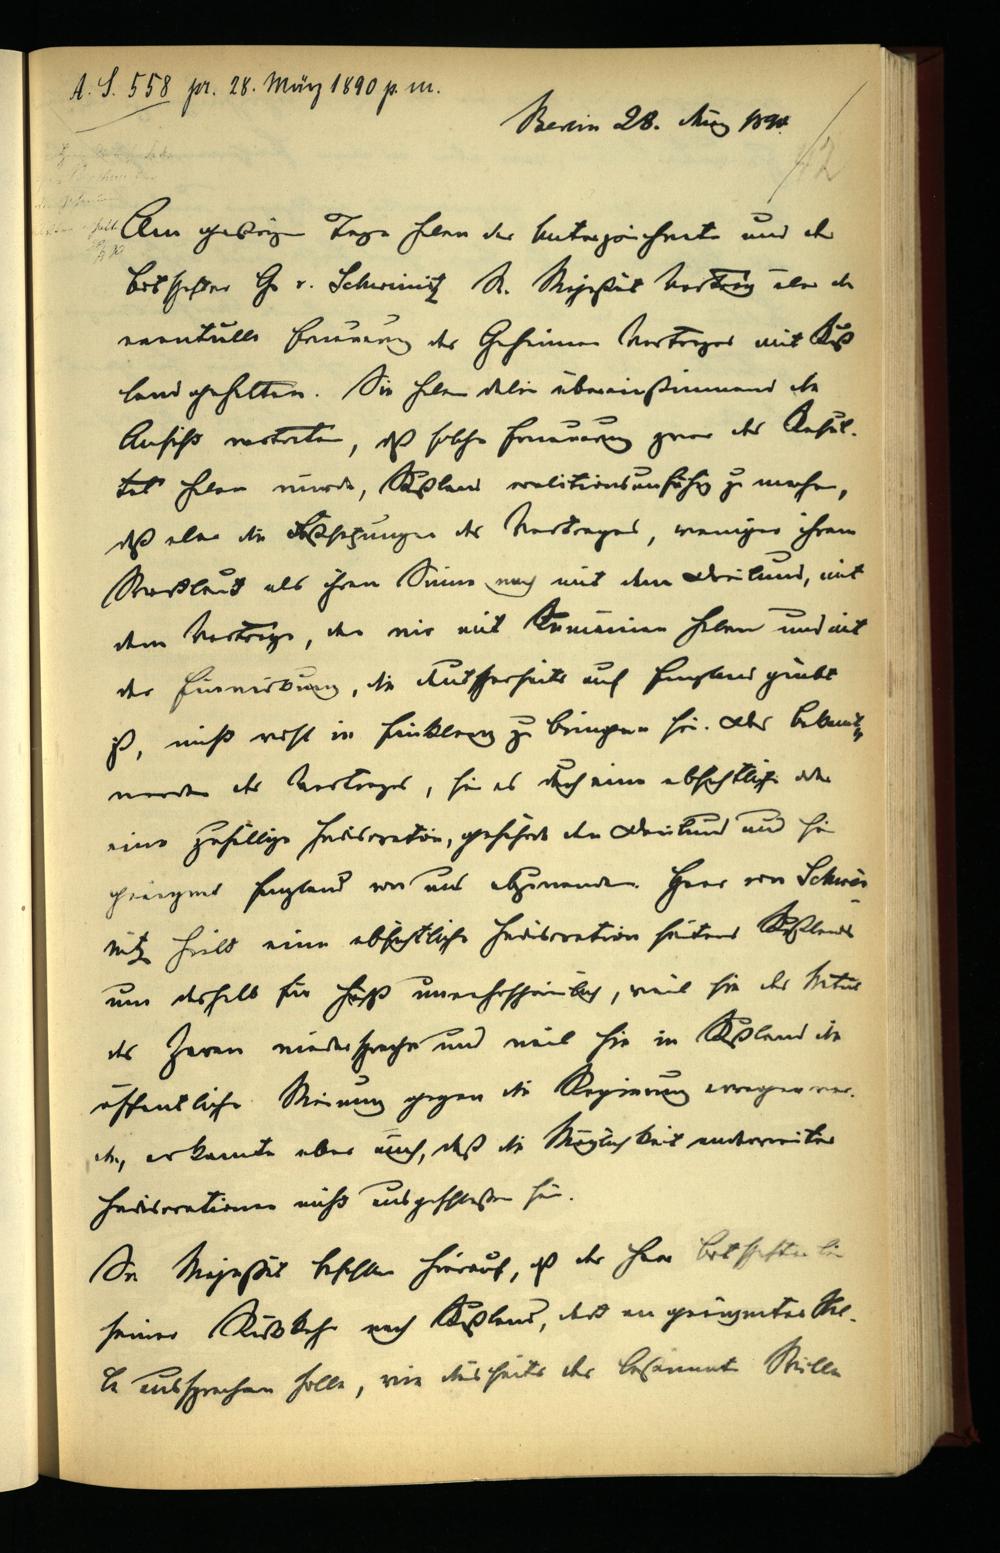 A. S. 558 pr. 28. März 1890 p. m.
Berlin 28. März 1890.
42
Am gestrigen Tage haben der Unterzeichnete und der
Botschafter G v. Schweinitz S. Majestät Vortrag über die
eventuelle Erneuerung des Geheimen Vertrages mit Ruß
land gehalten. Sie haben dabei übereinstimmend die
Ansicht vertreten, daß solche Erneuerung zwar das Resul-
tat haben würde, Rußland coalitionsunfähig zu machen,
daß aber die Festsetzungen des Vertrages, weniger ihrem
Wortlaut als ihrem Sinne nach mit dem Dreibund, mit
dem Vertrage, den wir mit Rumänien haben und mit
der Einwirkung, die deutscherseits auf England geübt
ist, nicht wohl in Einklang zu bringen sei. Das Bekannt-
werden des Vertrages, sei es durch eine absichtliche oder
eine zufällige Indiscretion, gefährde den Dreibund und sei
geeignet England von uns abzuwenden. Herr von Schwei
nitz hielt eine absichtliche Indiscretion seitens Rußlands
um deshalb für höchst unwahrscheinlich, weil sie der Natur
des Zaren widerspreche und weil sie in Rußland die
öffentliche Meinung gegen die Regierung erregen wer-
de, erkannte aber auch, daß die Möglichkeit anderweiter
Indiscretionen nicht ausgeschlossen sei.
Se Majestät befahlen hierauf, daß der Herr Botschafter bei
seiner Rückkehr nach Rußland, dort an geeigneter Stel-
le aussprechen solle, wie diesseits der bestimmte Wille